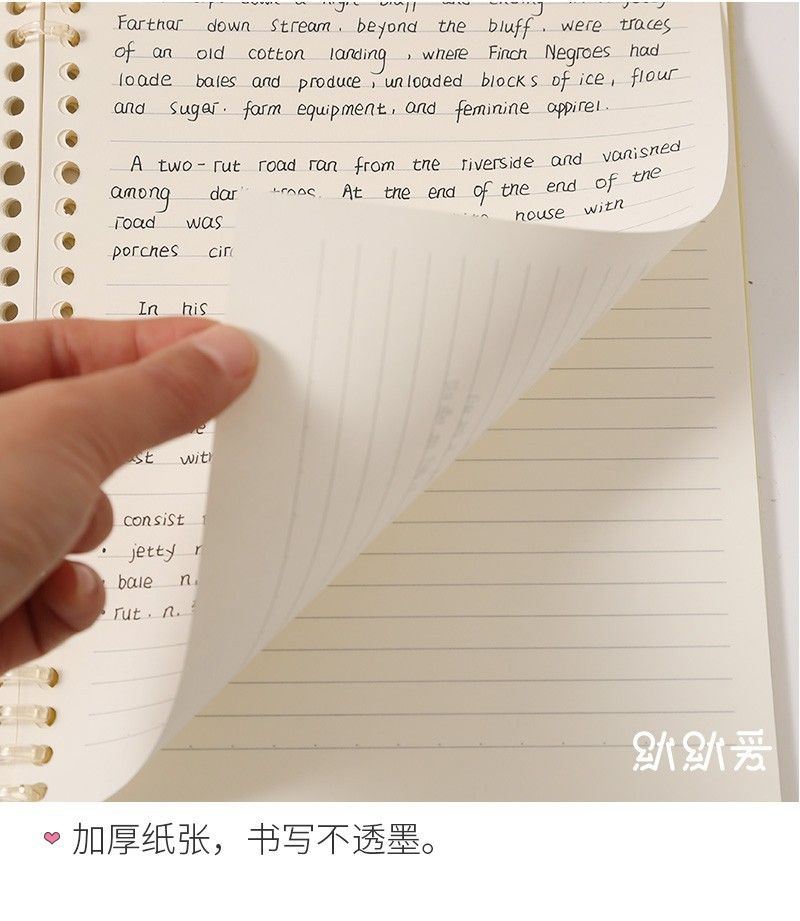 Farthar down stream, beyond the bluff, were traces
of an old cotton landing, where Finch Negroes had
loade bales and produce, unloaded blocks of ice, flour
and sugar. farm equipment, and feminine appirel.
A two-rut road ran from the riverside and vanished
among trees. At the end of the end of the
road was house with
porches
In his
consist
• jetty
bale n.
• rut. n.
趴趴爱
加厚纸张，书写不透墨。